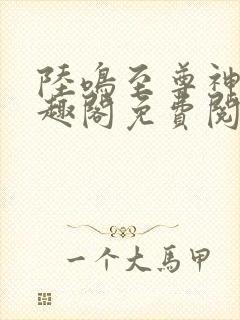 陸鳴至尊神
趣閣免費閱
一个大馬甲